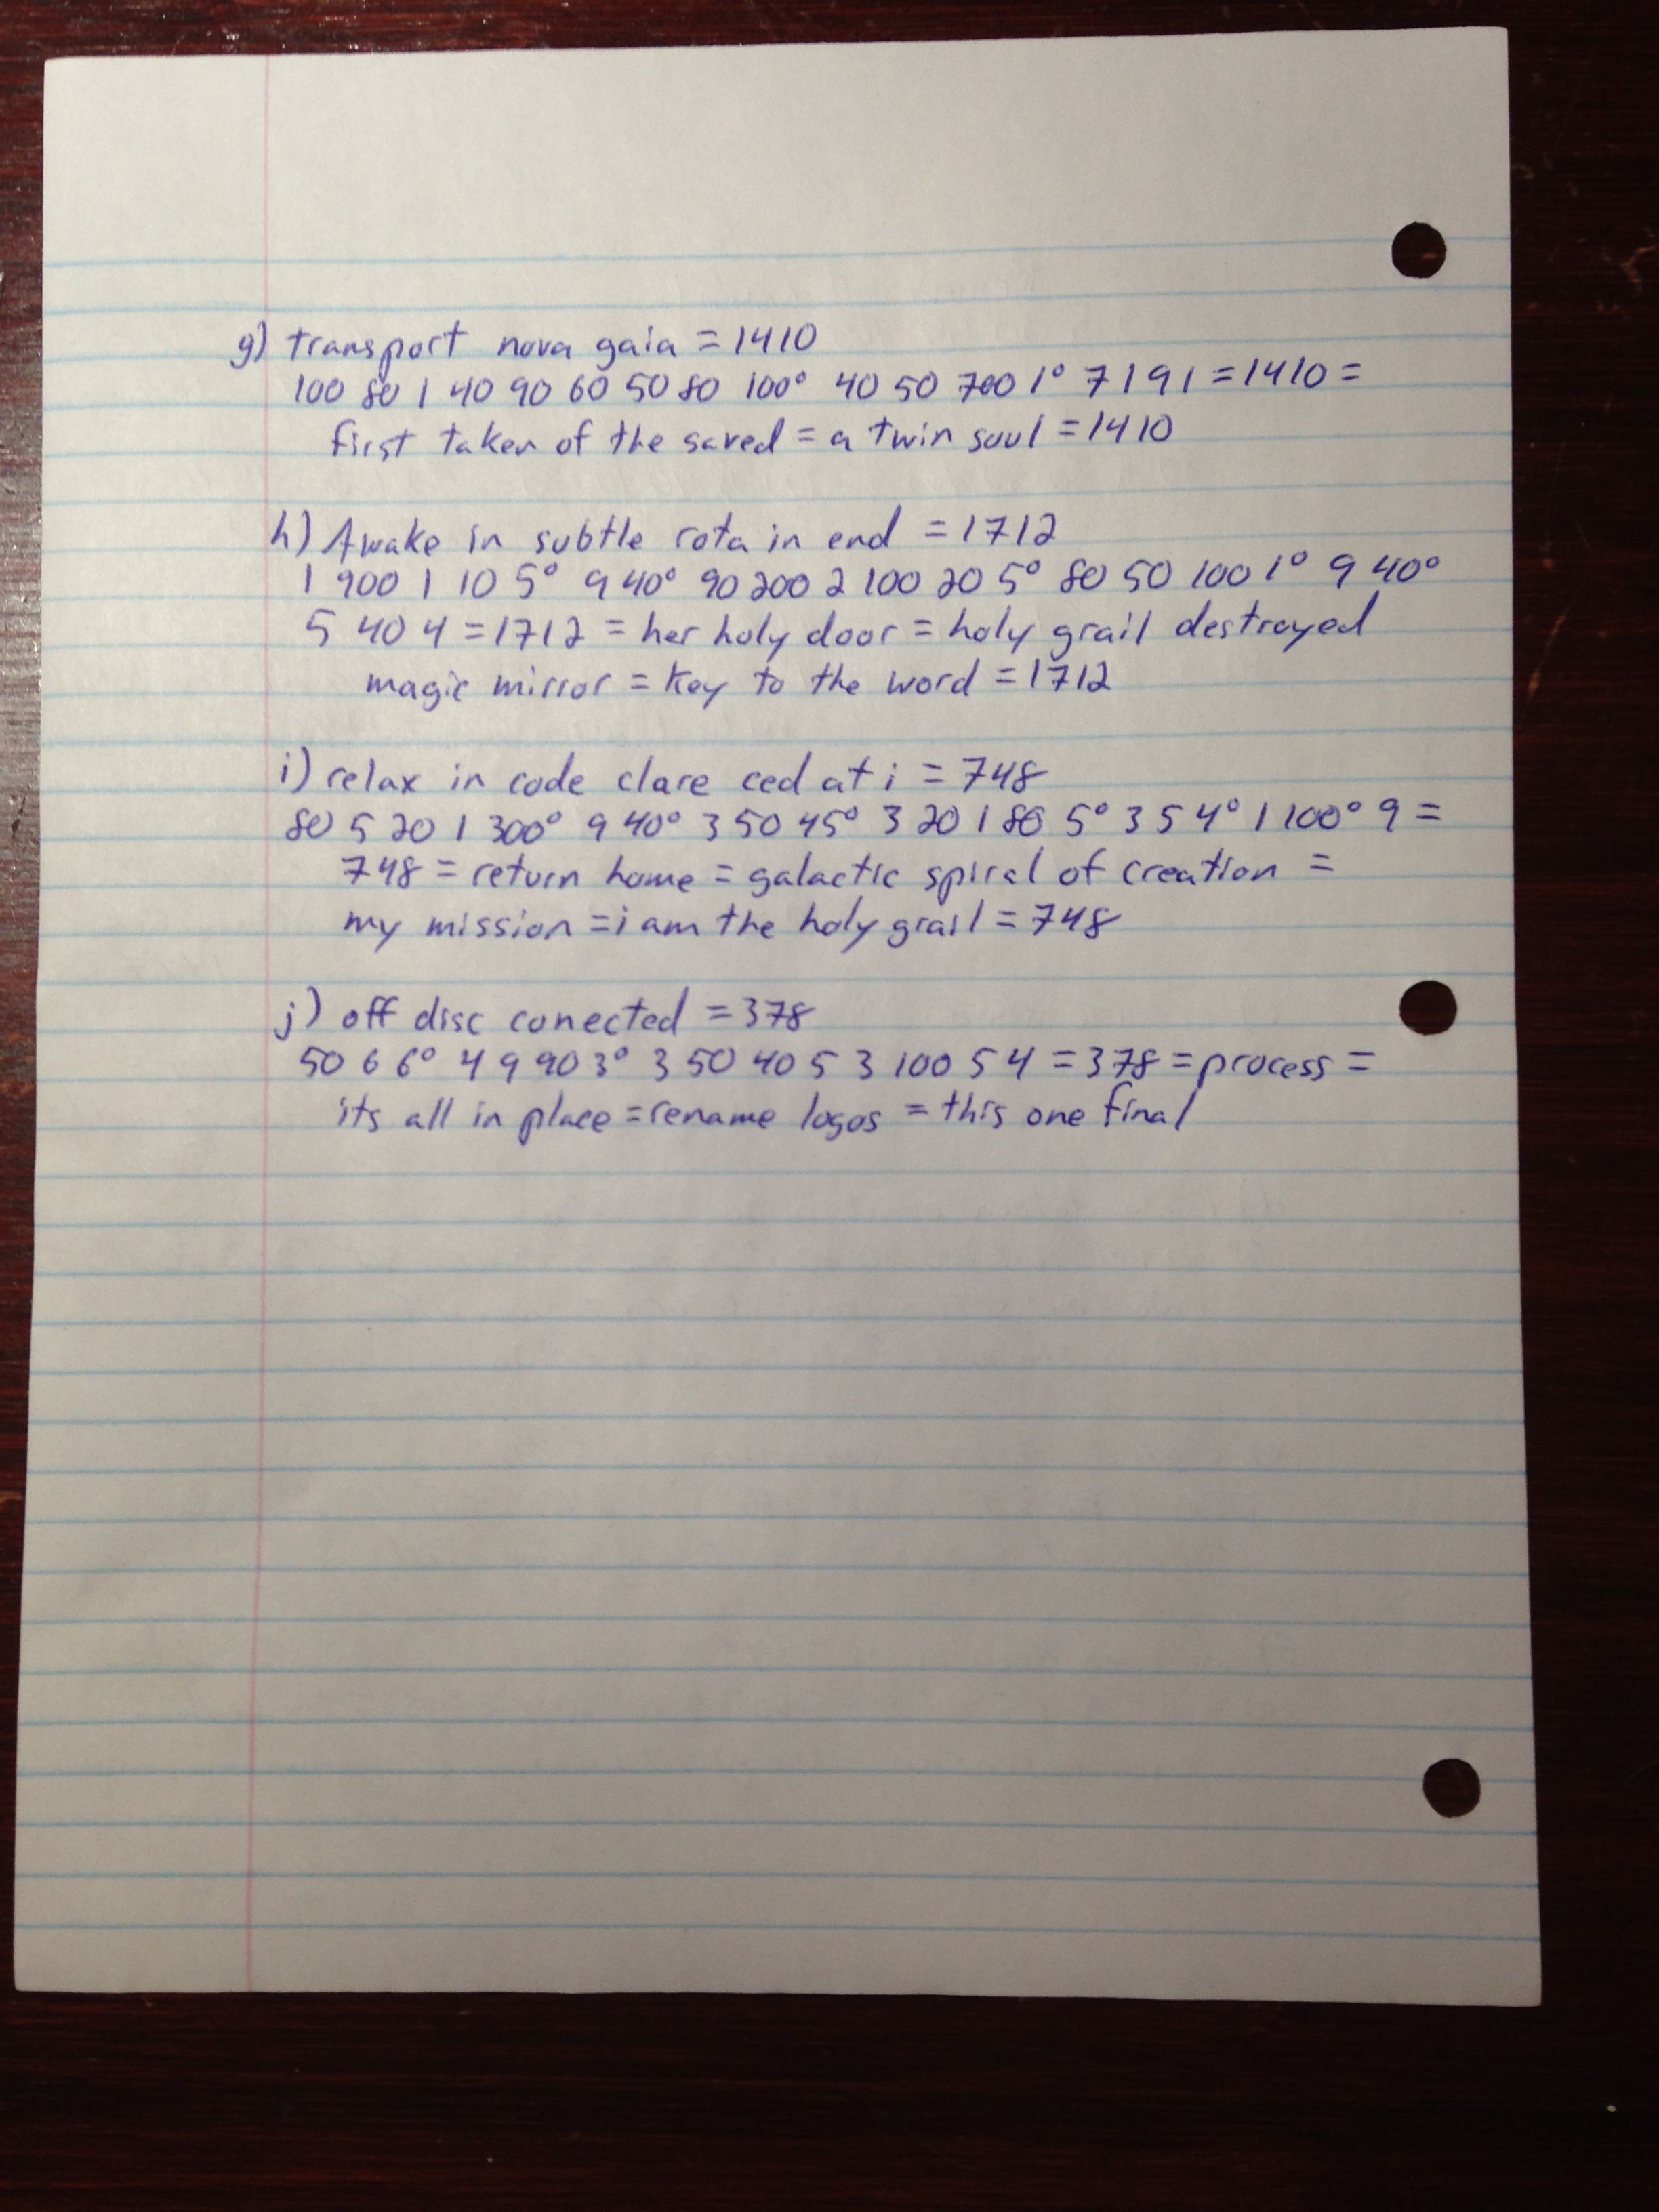 g) transport nova gaia = 1410
100 80 1 40 90 60 50 80 100° 40 50 700 1° 7 1 9 1 = 1410 =
first taken of the saved = a twin soul = 1410
h) Awake in subtle rota in end = 1712
1 900 1 10 5° 9 40° 90 200 2 100 20 5° 80 50 100 1° 9 40°
5 40 4 = 1712 = her holy door = holy grail destroyed
magic mirror = key to the word = 1712
i) relax in code clare ced at i = 748
80 5 20 1 300° 9 40° 3 50 45° 3 20 1 80 5° 3 5 4° 1 100° 9 =
748 = return home = galactic spiral of creation =
my mission = i am the holy grail = 748
j) off disc conected = 378
50 6 6° 4 9 90 3° 3 50 40 5 3 100 5 4 = 378 = process =
its all in place = rename logos = this one final